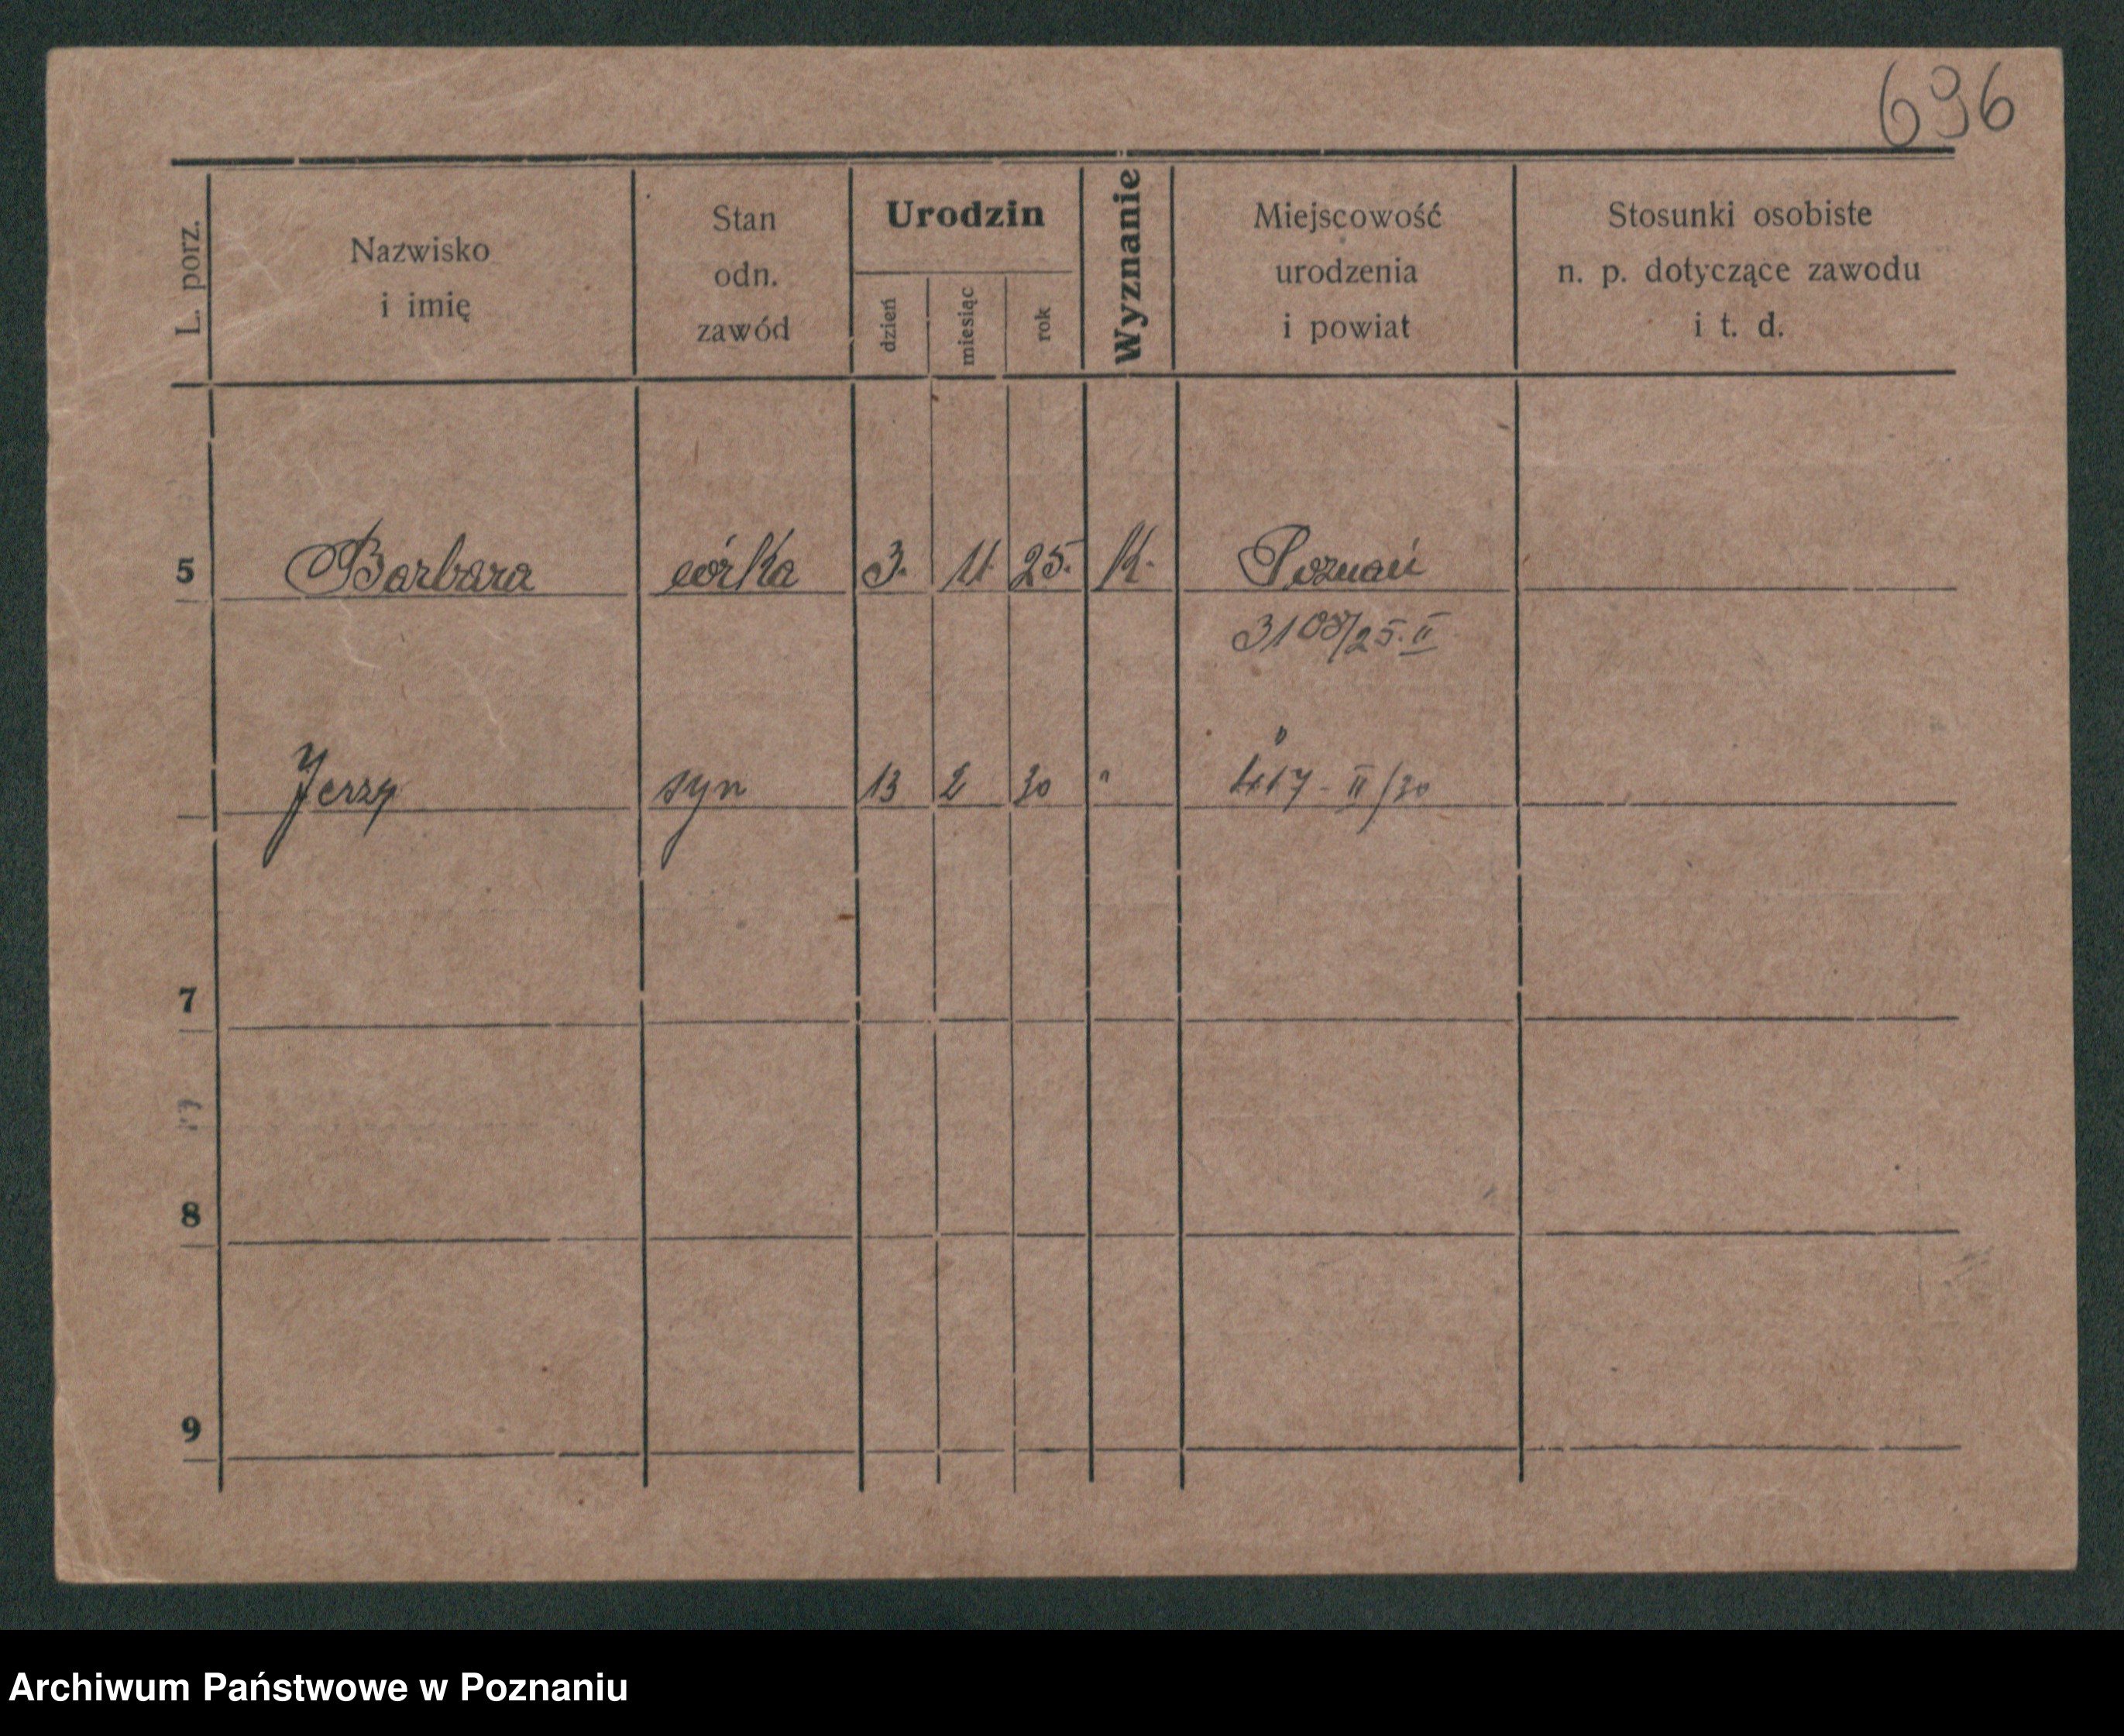 696
L. porz.
Nazwisko
i imię
Stan
odn.
zawód
Urodzin
dzień
miesiąc
rok
Wyznanie
Miejscowość
urodzenia
i powiat
Stosunki osobiste
n. p. dotyczące zawodu
i t. d.
5 Barbara córka 3. 11. 25. K. Poznań
3108/25.II
"
Jerzy syn 13 2 30 " 417 - II/30
7
8
9
Archiwum Państwowe w Poznaniu